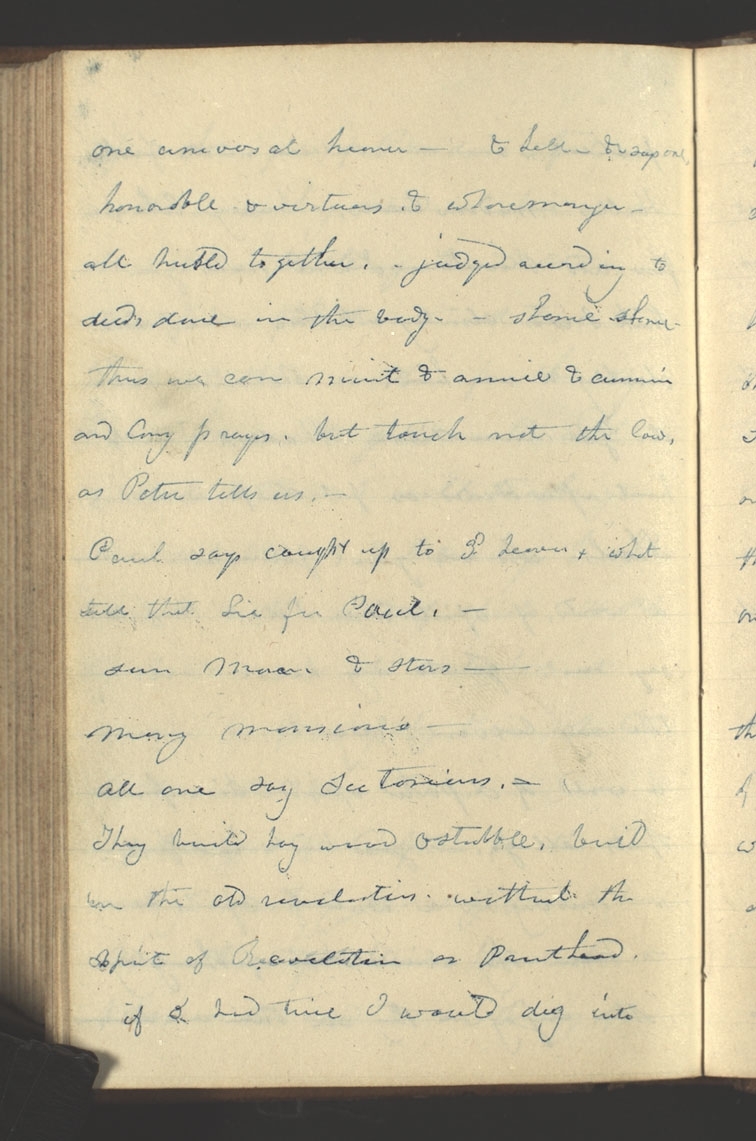 one universal heaven — & hell & suppose
honorable & virtuous & whoremonger —
all hudld together. - judged according to
deeds done in the body. - shame shame -
thus we can mint & annice & cummin
and long prayrs. but touch not the law,
as Peter tells us. —
Paul says caught up to 3d heaven & what
tell that lie for Paul. —
sun Moon & stars —
many mansions —
all one say Sectariens. =
They build hay wood & stubble. build
on the old revelations. without the
Spirit of Revelation or Priesthood.
if I had time I would dig into